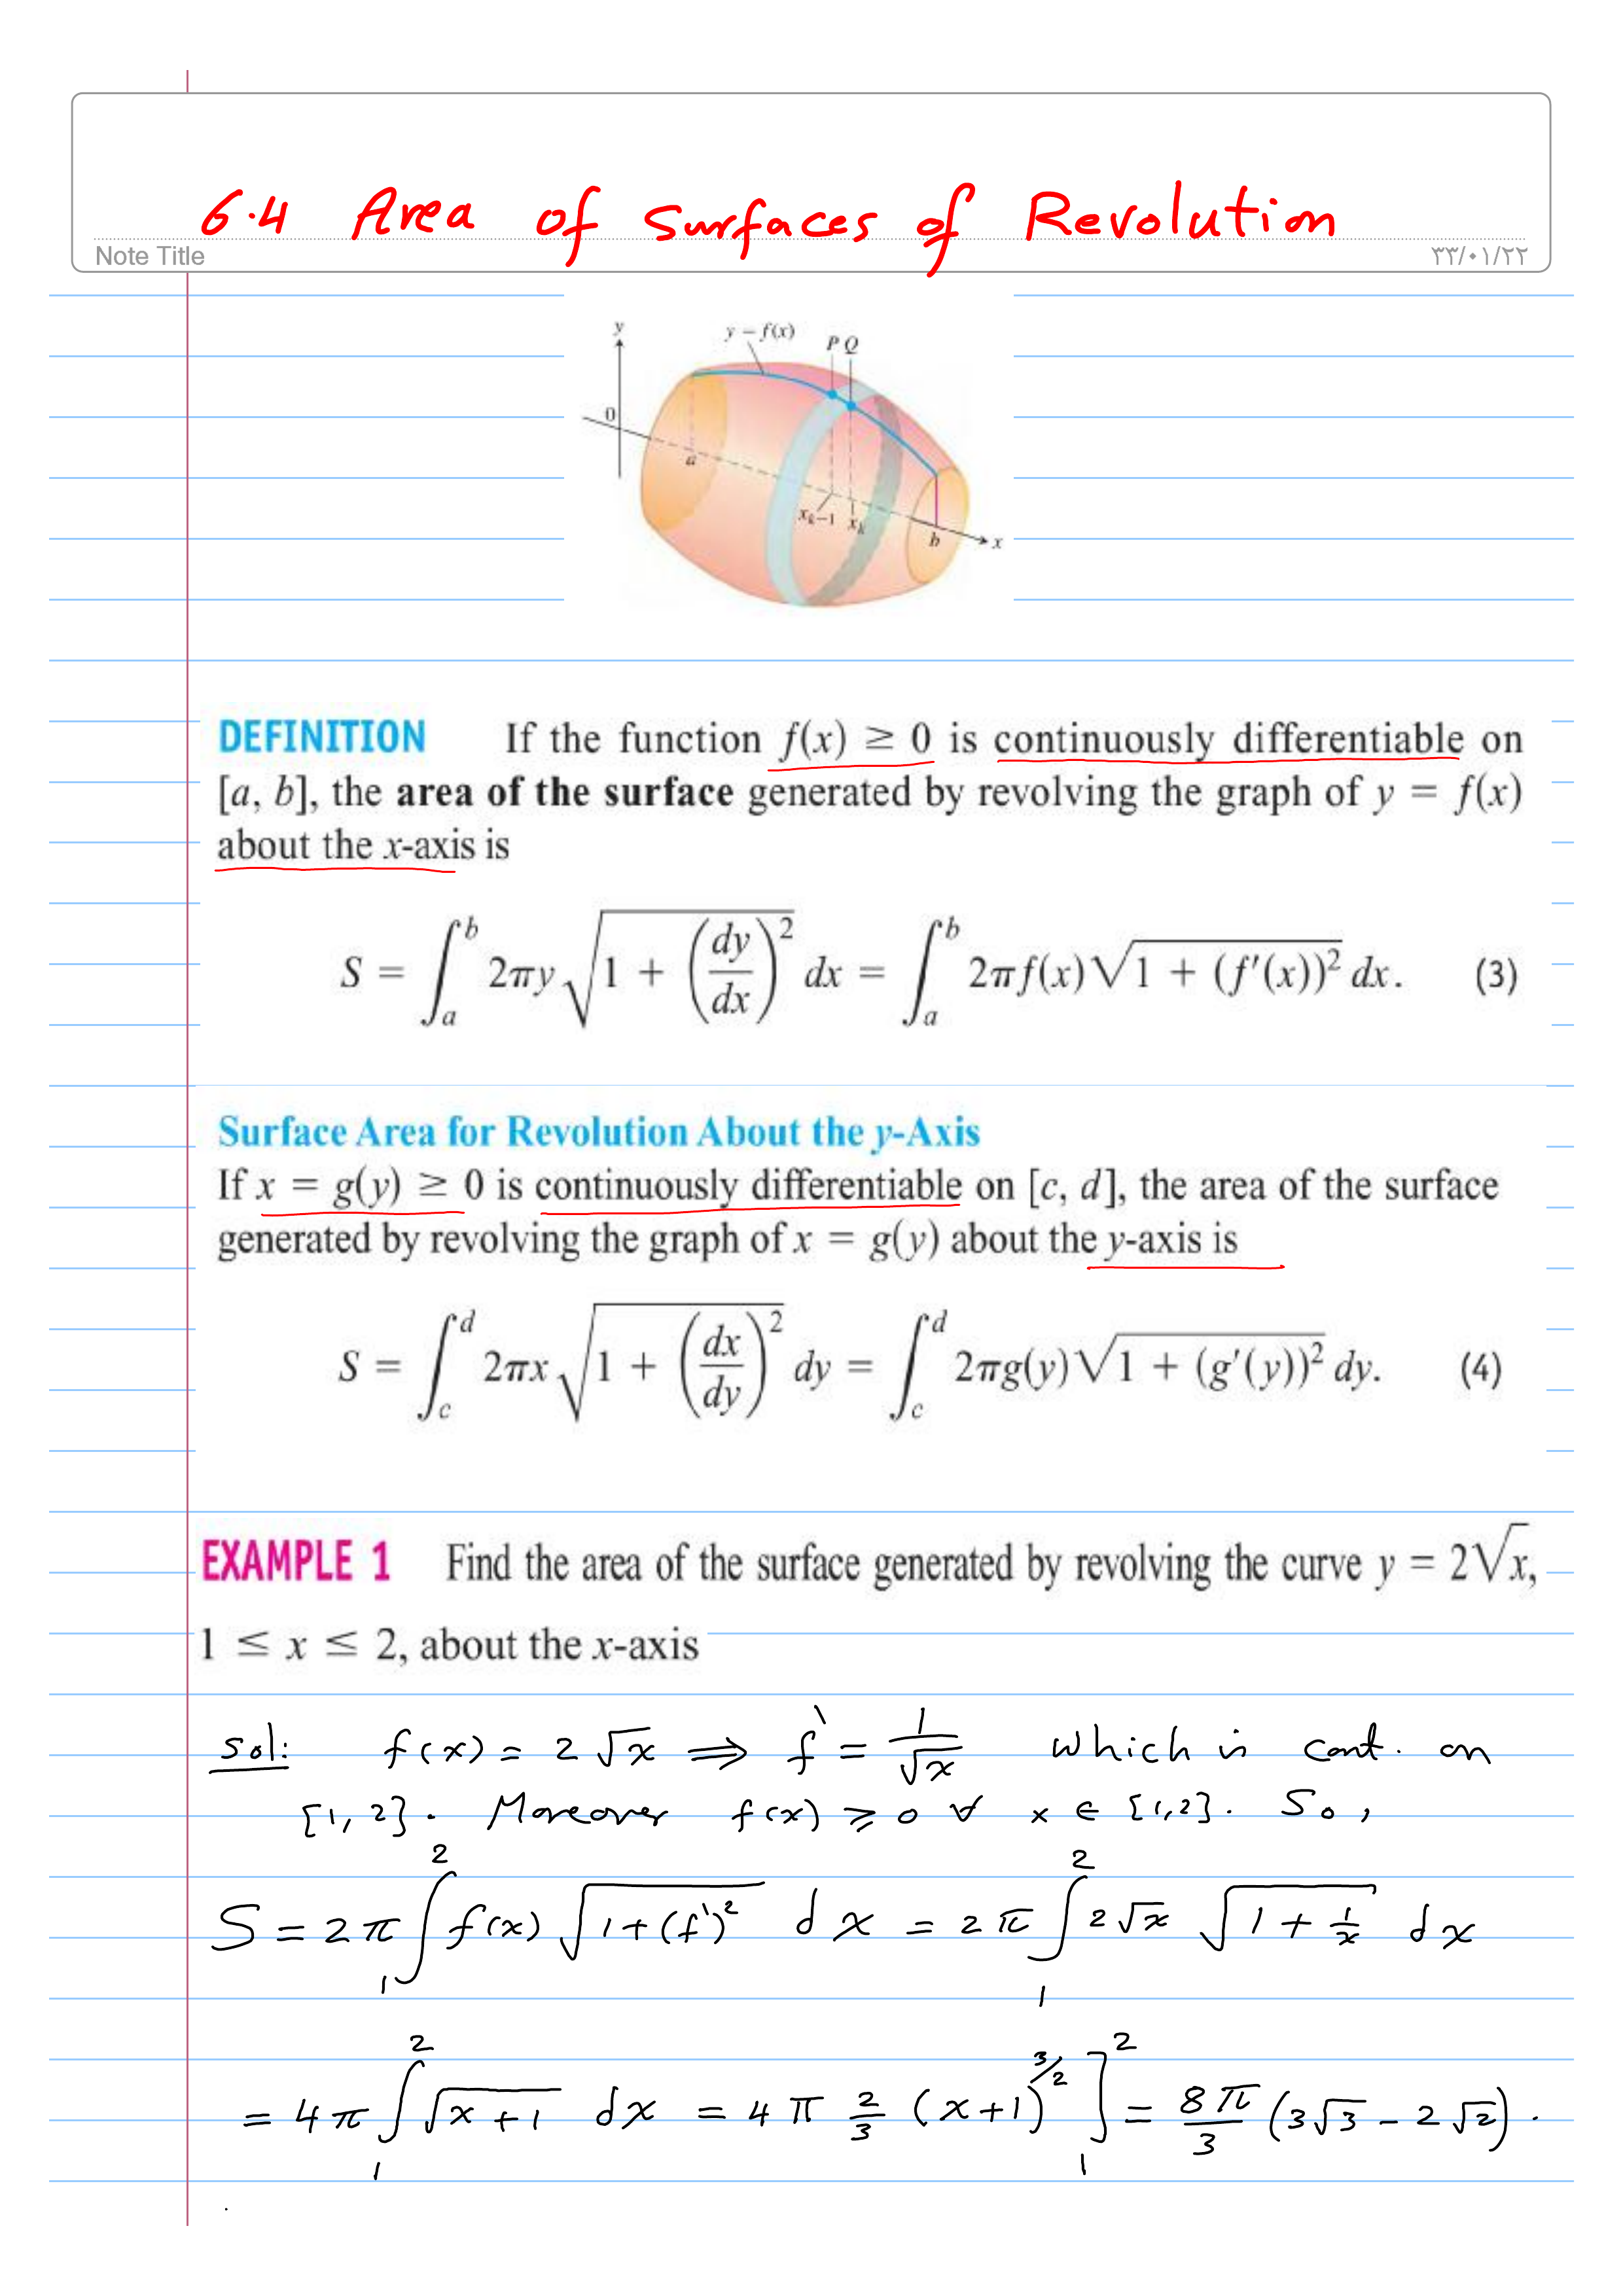 6.4 Area of Surfaces of Revolution
Note Title
٢٢/٠١/٣٣
y
y = f(x)
P Q
0
a
xₖ₋₁ xₖ
b
x
DEFINITION If the function f(x) ≥ 0 is continuously differentiable on
[a, b], the area of the surface generated by revolving the graph of y = f(x)
about the x-axis is
S = ∫ₐᵇ 2πy √(1 + (dy/dx)²) dx = ∫ₐᵇ 2πf(x)√(1 + (f′(x))²) dx. (3)
Surface Area for Revolution About the y-Axis
If x = g(y) ≥ 0 is continuously differentiable on [c, d], the area of the surface
generated by revolving the graph of x = g(y) about the y-axis is
S = ∫_c^d 2πx √(1 + (dx/dy)²) dy = ∫_c^d 2πg(y)√(1 + (g′(y))²) dy. (4)
EXAMPLE 1 Find the area of the surface generated by revolving the curve y = 2√x,
1 ≤ x ≤ 2, about the x-axis
sol: f(x) = 2√x ⟹ f` = 1/√x which is cont. on
[1, 2]. Moreover f(x) ≥ 0 ∀ x ∈ [1,2]. So,
S = 2π ∫₁² f(x) √(1+(f`)²) dx = 2π ∫₁² 2√x √(1 + 1/x) dx
= 4π ∫₁² √(x+1) dx = 4π 2/3 (x+1)^(3/2) ]₁² = 8π/3 (3√3 − 2√2).